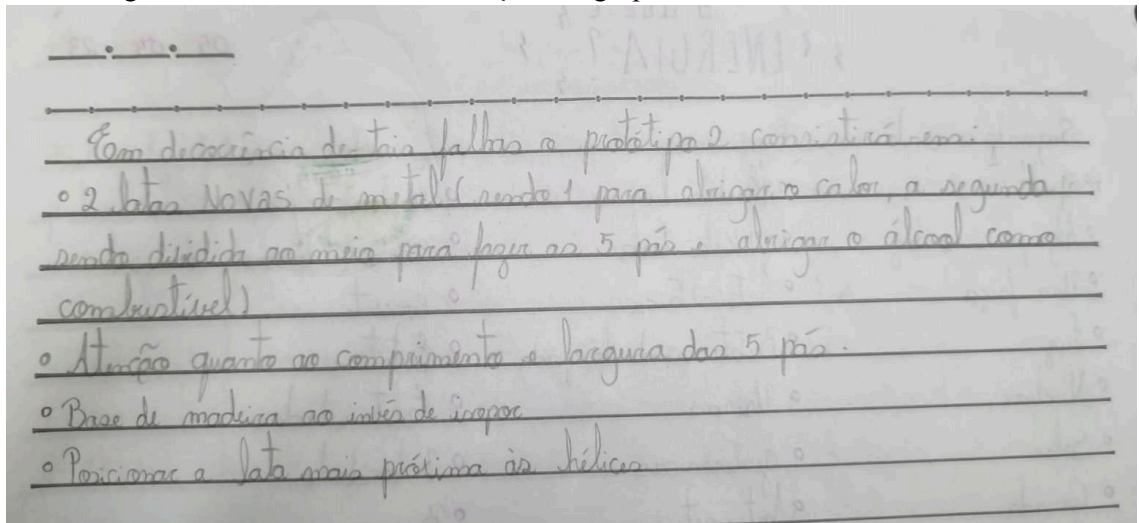 Com decorrência de tais falhas o protótipo 2 consistirá em:
• 2 latas Novas de metal (sendo 1 para abrigar o calor, a segunda
sendo dividida ao meio para fazer as 5 pás e abrigar o álcool como
combustível)
• Atenção quanto ao comprimento e largura das 5 pás.
• Base de madeira ao invés de isopor
• Posicionar a lata mais próxima às hélices